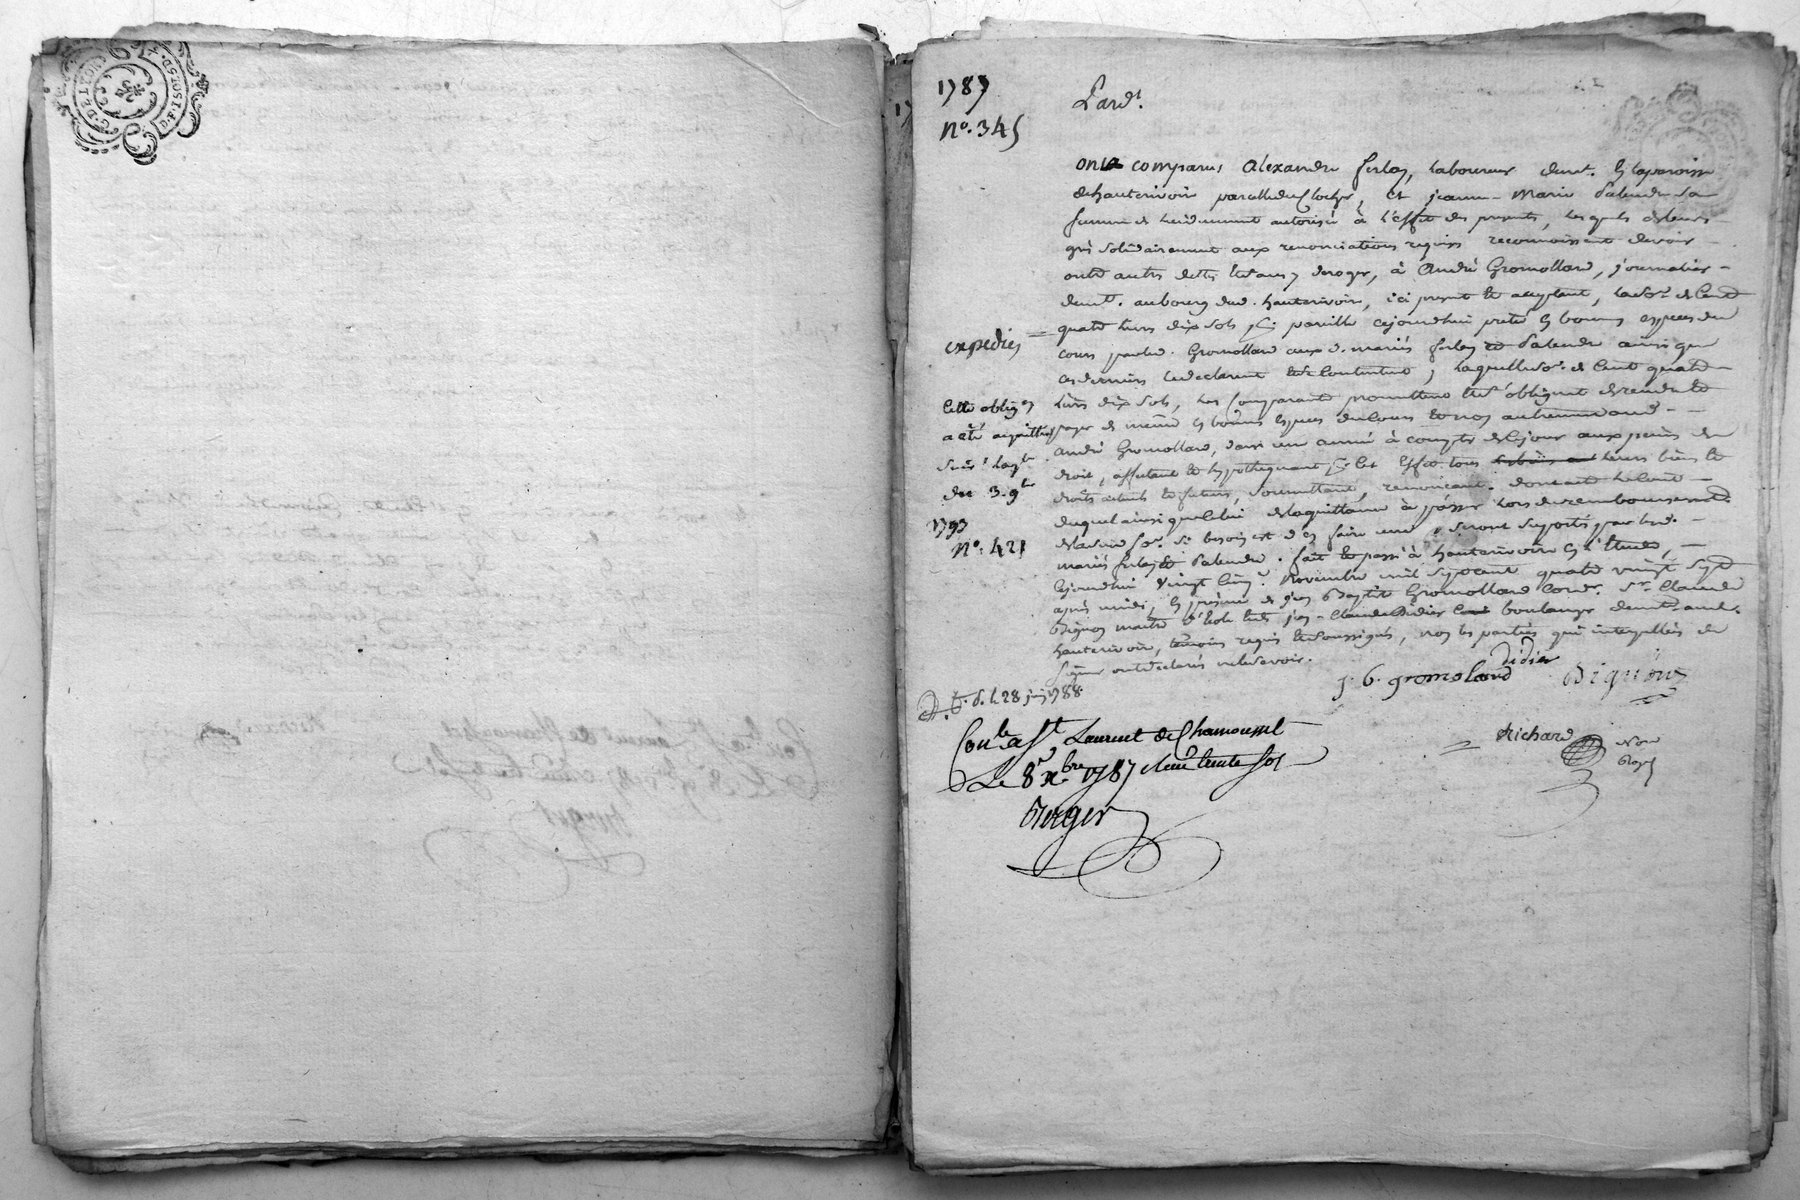 G. DE LYON
D. F. 1 SOL 5 D.
1787
n°. 345
Pard.t
ont comparus Alexandre ferlay, laboureur demt. en la paroisse
de hauterivoir parcelle du Clocher, et jeanne-Marie Palandre sa
femme de lui duement autorisée à l'effet des presentes, lesquels de leurs
gré solidairement aux renonciations requises reconnoissent devoir
outre autres dettes et sans y deroger, à André Gromollard, journalier
demt. au bourg dud. hauterivoir, ici present et acceptant, la so.e de Cent
quatre livres dix sols pour pareille cejourdhui prêté en bonnes especes du
cours par led. Gromollard aux d. mariés ferlay et Palandre ainsi que
ces derniers le declarent et s'en Contentent, laquelle so.e de Cent quatre
livres dix sols, les Comparants promettent et s'obligent de rendre et
payer de même en bonnes especes du Cours et non autrement aud.
André Gromollard, dans une année à compter de Ce jour aux peines de
droit, affectant et hypothequant pour cet effet tous leurs biens et
droits actuels et futurs, soumettant, renonçant. dont acte le Cout
duquel ainsi que Celui de la quittance à passer lors du remboursement
de la dite so.e si besoin est d'en faire une, seront suportés par les d.
mariés ferlay et Palandre. fait et passé à hauterivoire en l'Etude,
Cejourdhui vingt Cinq Novembre mil sept cent quatre vingt sept
après midi, en présence de jean Baptiste Gromolland Cord.r Sr. Claude
Bignon maitre d'Ecole et de jean-Claude Didier boulanger demt. aud.
hauterivoir, témoins requis et soussignés, non les parties qui interpellées de
signer ont declarés ne le savoir.
expediée
Cette oblig.on
a été acquittée
Suiv.t l'acte
du 3. 9.bre
1793
N°. 421
didier
j. b. gromoland
Bignon
le 28 juin 1788
Con.lé a St Laurent de Chamousset
Le 8.e X.bre 1787 Reçu trente sols
Berger
Richard
Not.re
Royal